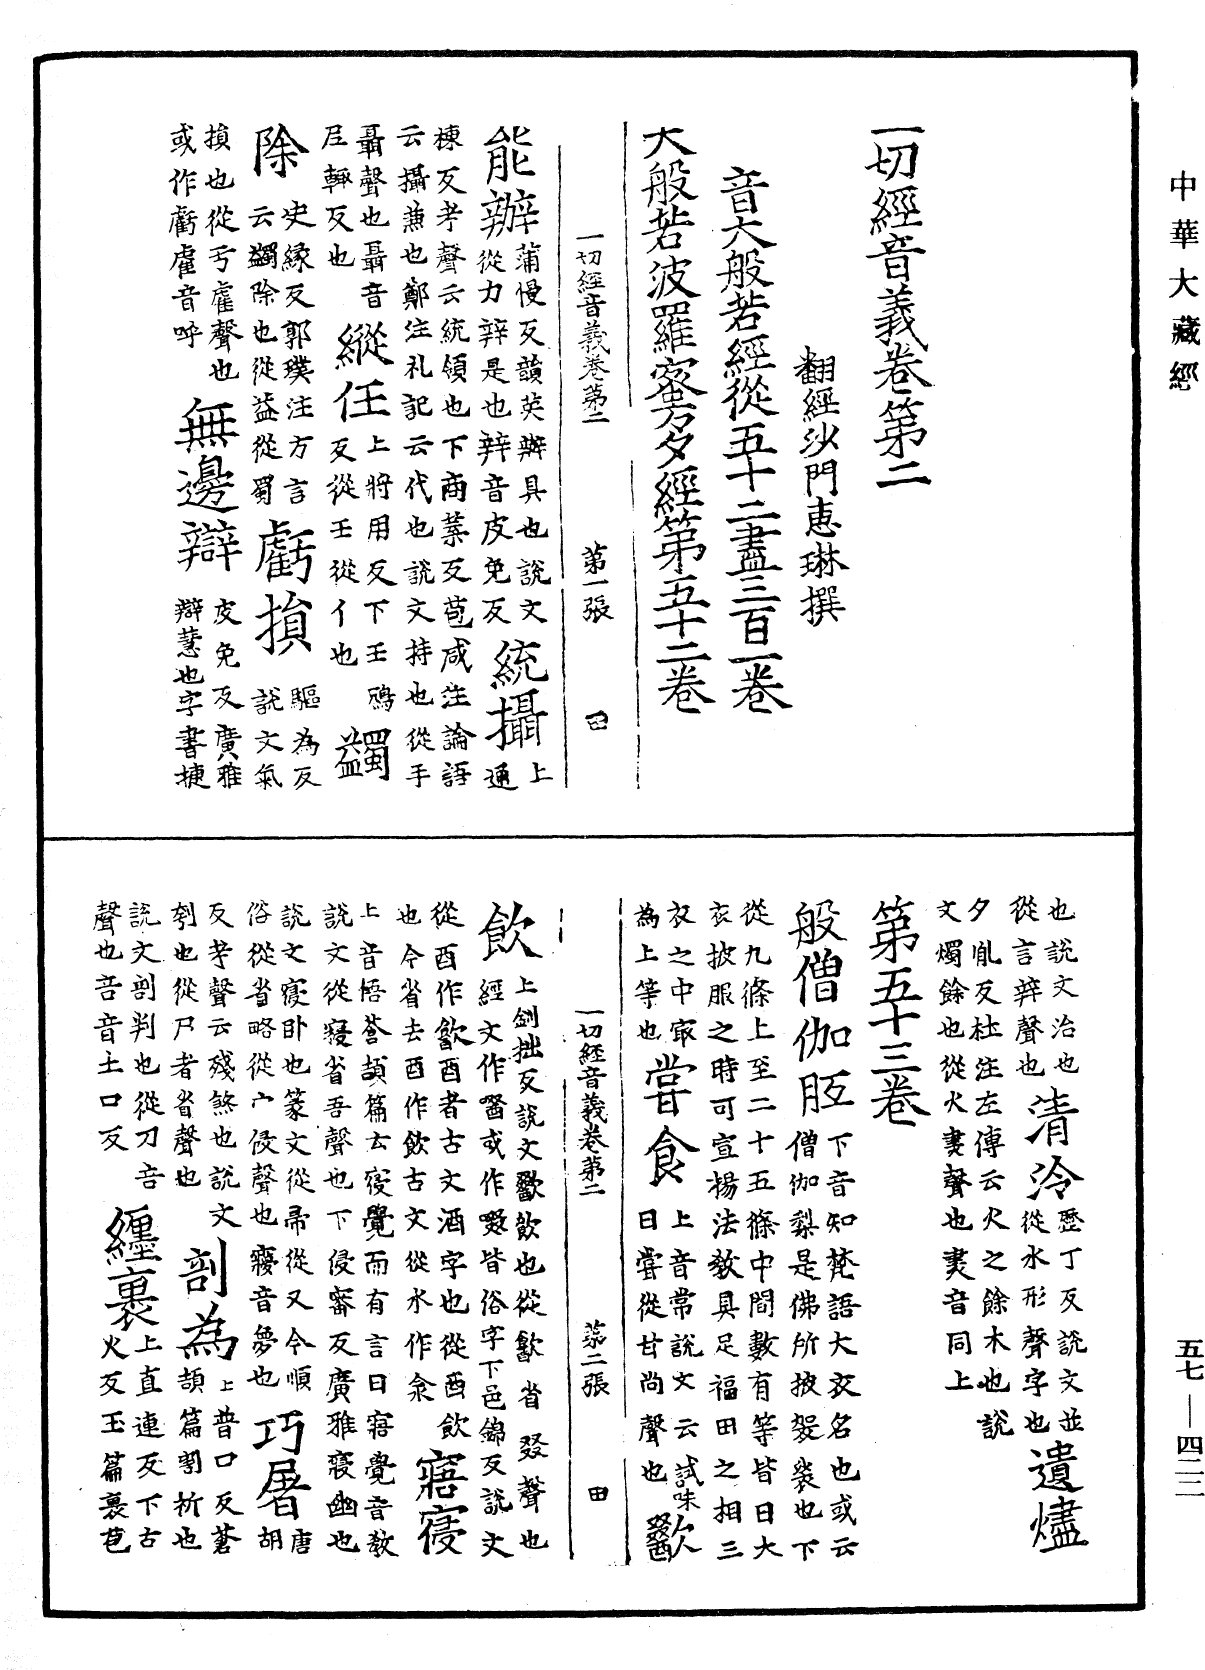 中華大藏經
一切經音義卷第二
翻經沙門惠琳撰
音大般若經從五十二盡三百一卷
大般若波羅蜜多經第五十二卷
一切經音義卷第二 第一張
能辦蒲慢反韻英辦具也說文
從力辡是也辡音皮免反統攝上通
棟反考聲云統領也下商葉反苞咸注論語
云攝兼也鄭注礼記云代也說文持也從手
聶聲也聶音縱任上將用反下壬鴆
𡰱輒反也反從壬從亻也蠲
除𡰱緣反郭璞注方言
云蠲除也從益從蜀虧損驅為反
說文氣
損也從亏雐聲也
或作虧雐音呼無邊辯皮免反廣雅
辯慧也字書捷
也說文治也
從言辡聲也清泠歷丁反說文並
從水形聲字也遺燼
夕胤反杜注左傳云火之餘木也說
文燭餘也從火𦘔聲也𦘔音同上
第五十三卷
般僧伽胝下音知梵語大衣名也或云
僧伽梨是佛所披袈裟也下
從九條上至二十五條中間數有等皆曰大
衣披服之時可宣揚法教具足福田之相三
衣之中㝡
為上等也甞食上音常說文云試味
曰甞從甘尚聲也歠
一切經音義卷第二 第二張
飲上釧拙反說文歠飲也從㱃省叕聲也
經文作㗖或作啜皆俗字下邑錦反說文
從酉作㱃酉者古文酒字也從酉飲
也今省去酉作飲古文從水作㳄寤寑
上音悟蒼頡篇云寑覺而有言曰寤覺音教
說文從㝱省吾聲也下侵審反廣雅寑幽也
說文寑卧也篆文從帚從又今順
俗從省略從宀侵聲也㝱音夢也巧屠唐胡
反考聲云殘煞也說文
刳也從尸者省聲也剖為上普口反蒼
頡篇剖析也
說文剖判也從刀咅
聲也咅音土口反纏裹上直連反下古
火反玉篇裹苞
五七—四二二